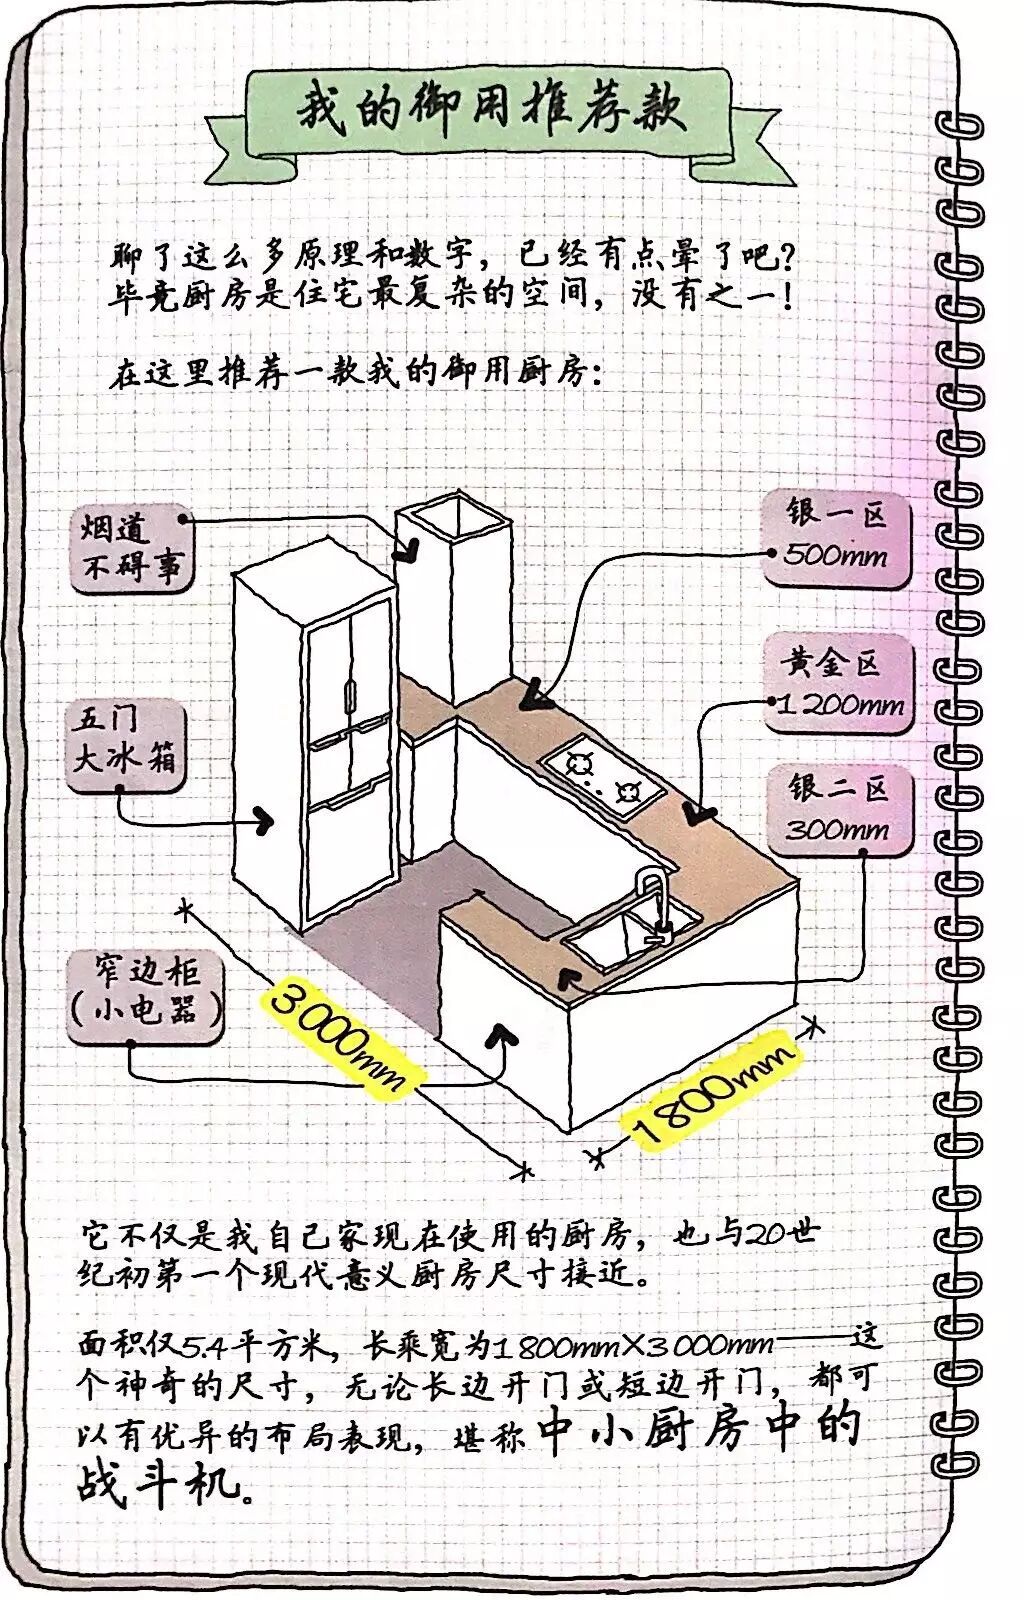 我的御用推荐款
聊了这么多原理和数字，已经有点晕了吧？
毕竟厨房是住宅最复杂的空间，没有之一！
在这里推荐一款我的御用厨房：
烟道
不碍事
银一区
500mm
黄金区
1200mm
五门
大冰箱
银二区
300mm
窄边柜
（小电器）
3000mm
1800mm
它不仅是我自己家现在使用的厨房，也与20世
纪初第一个现代意义厨房尺寸接近。
面积仅5.4平方米，长乘宽为1800mm×3000mm——这
个神奇的尺寸，无论长边开门或短边开门，都可
以有优异的布局表现，堪称中小厨房中的
战斗机。